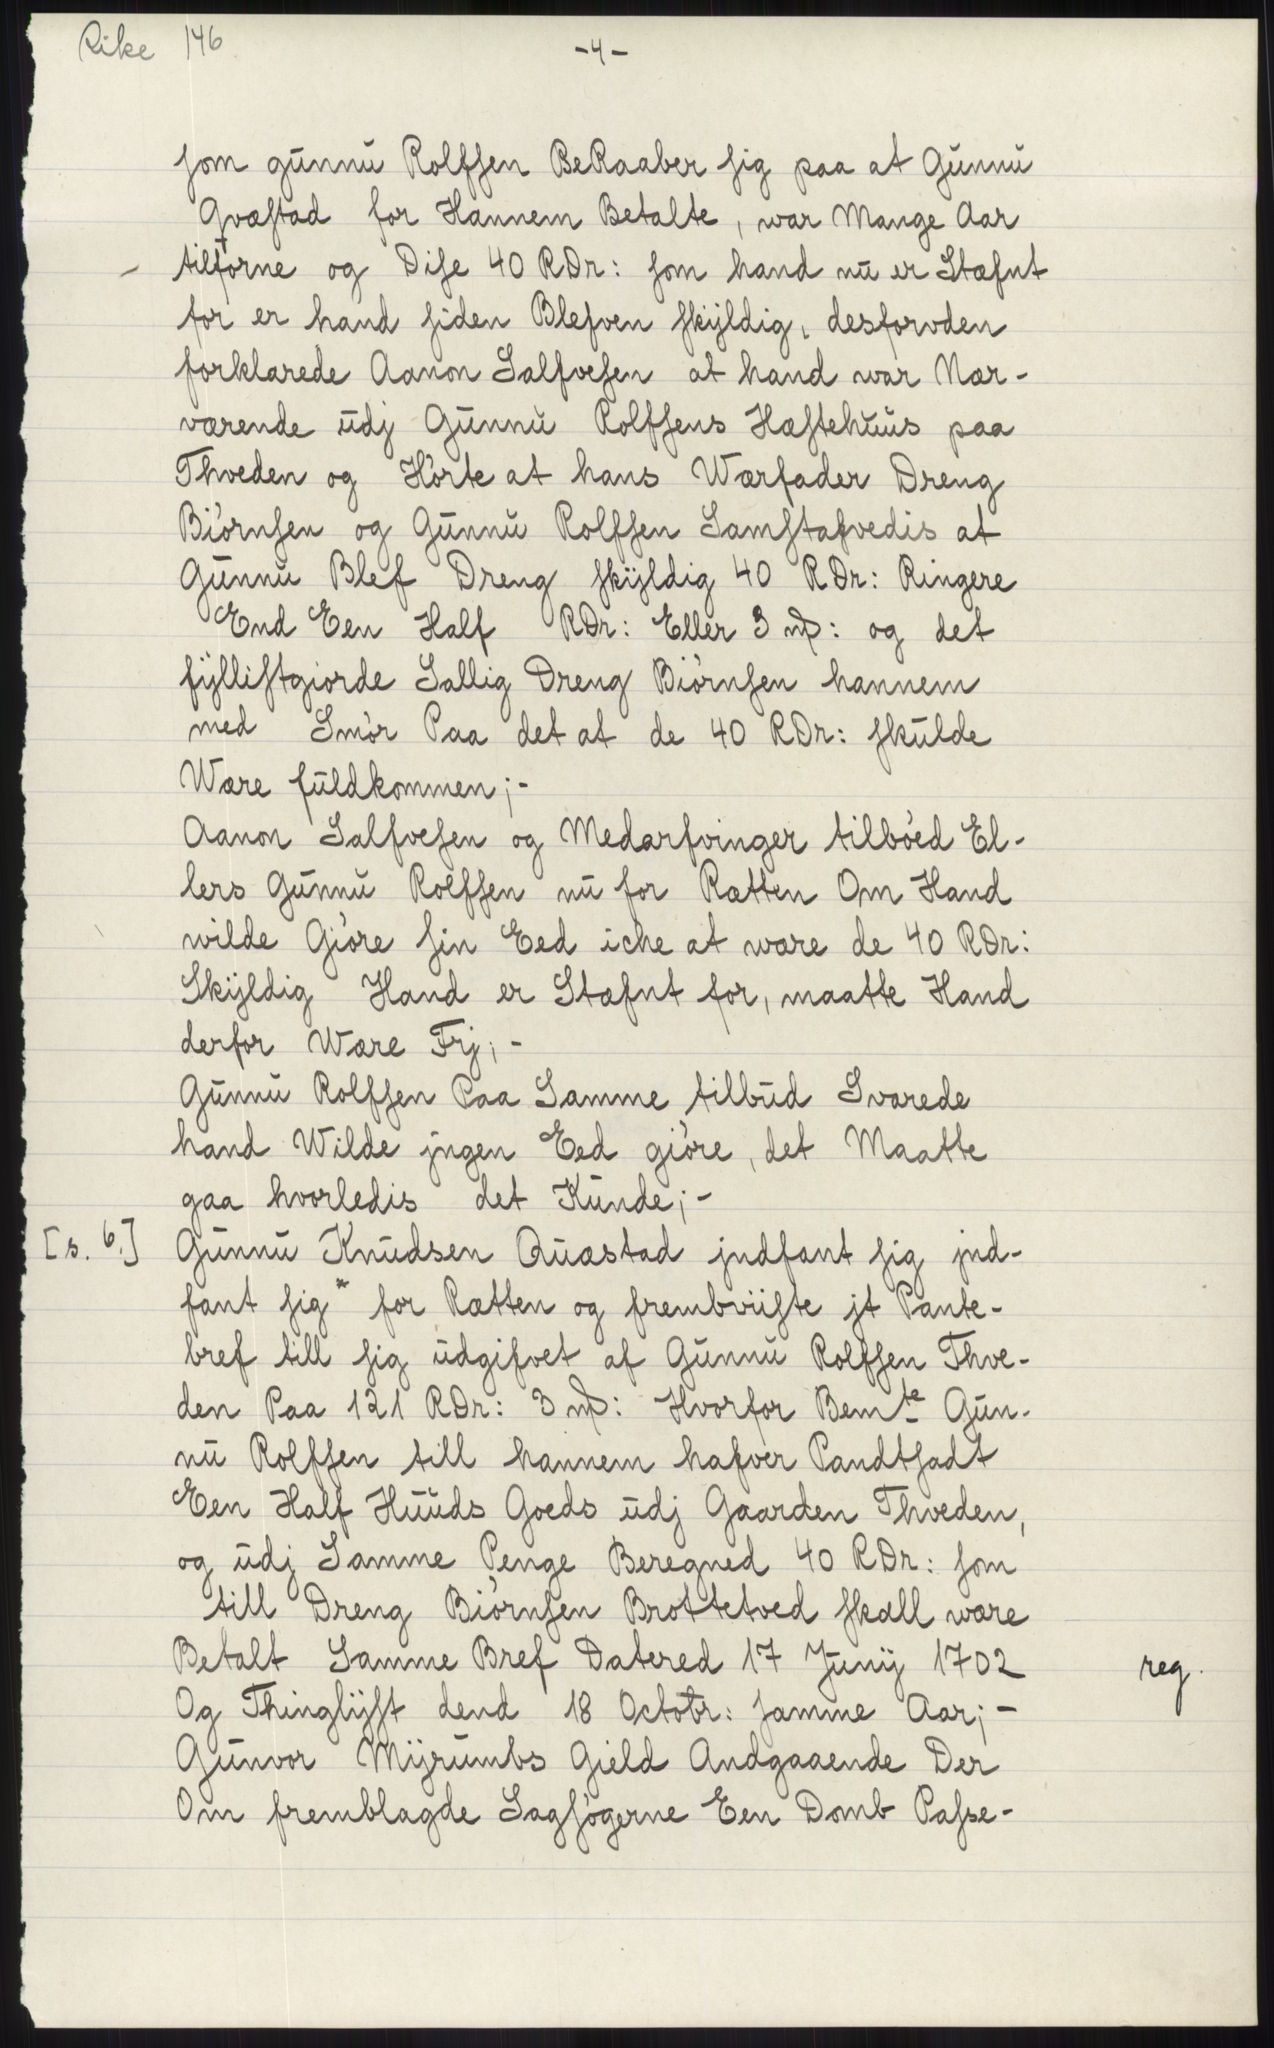 Rike 146
-4-
som gunnu Rolfsen BeRaaber sig paa at Gunnu
Qvæstad for Hannem Betalte, war Mange Aar
tilforne og Dise 40 RDr: som hand nu er Stæfnt
for er hand siden Blefven skÿldig, desforvden
forklarede Aanon Salfvesen at hand war Nær-
værende udj Gunnu Rolfsens Hæstehuus paa
Thveden og Hørte at hans Wærfader Dreng
Biørnsen og Gunnu Rolfsen Samstafvedis at
Gunnu Blef Dreng skÿldig 40 RDr: Ringere
End Een Half RDr: Eller 3 mƿ: og det
fÿllistgiorde Sallig Dreng Biørnsen hannem
med Smør Paa det at de 40 RDr: skulde
Wære fuldkommen;-
Aanon Salfvesen og Medarfvinger tilbøed El-
lers Gunnu Rolfsen nu for Rætten Om Hand
wilde Giøre sin Eed icke at wære de 40 RDr:
Skÿldig Hand er Stæfnt for, maatte Hand
derfor Wære Frj;-
Gunnu Rolfsen Paa Samme tilbud Svarede
hand Wilde jngen Eed giøre, det Maatte
gaa hvorledis det Kunde;-
[s. 6.] Gunnu Knudsen Quæstad jndfant sig jnd-
fant sig* for Rætten og frembviiste jt Pante-
bref till sig udgifvet af Gunnu Rolfsen Thve-
den Paa 121 RDr: 3 mƿ: Hvorfor Bemte Gun-
nu Rolfsen till hannem hafver Pandtsadt
Een Half Huuds Goeds udj Gaarden Thveden,
og udj Samme Penge Beregned 40 RDr: som
till Dreng Biørnsen Brottetved skall wære
Betalt Samme Bref Datered 17 Junÿ 1702 reg.
Og Thinglÿst dend 18 Octobr: samme Aar;-
Gunvor Mÿrumbs Gield Andgaaende Der
Om fremblagde Sagsøgerne Een Domb Passe-